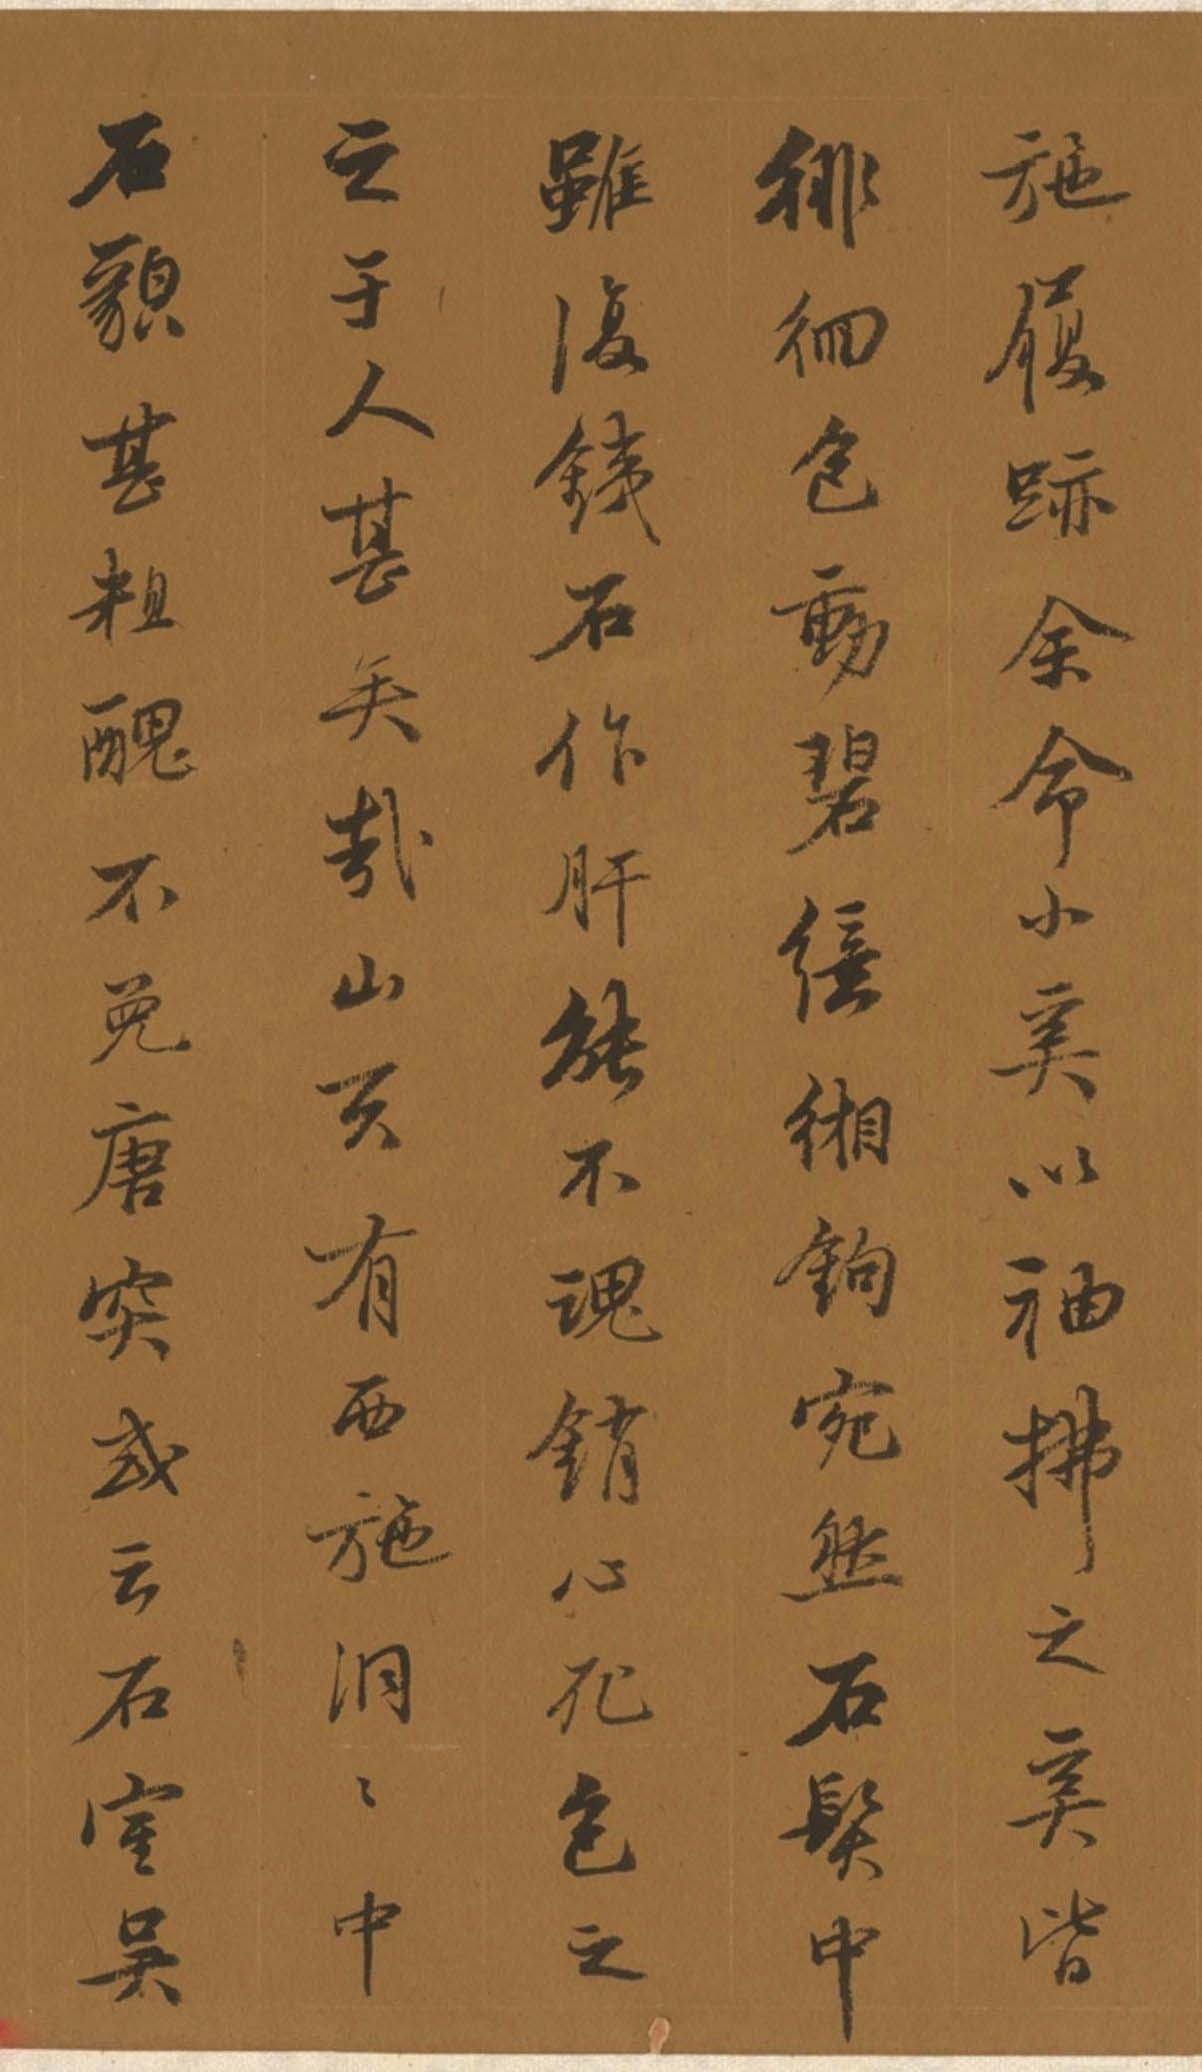 施履跡余命小奚以袖拂之奚皆
徘徊色動碧繶緗鉤宛然石髮中
雖復銕石作肝能不魂銷心死色之
之于人甚矣哉山仄有西施洞〻中
石貌甚粗醜不免唐突或云石室吳